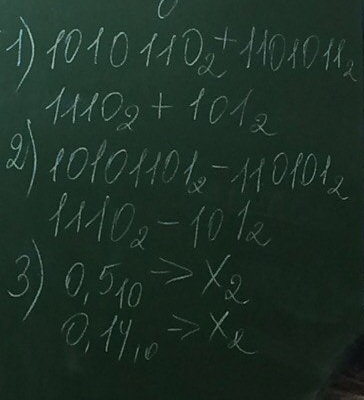 1) 1010110₂ + 1101011₂
1110₂ + 101₂
2) 10101101₂ - 110101₂
1110₂ - 101₂
3) 0,5₁₀ -> X₂
0,14₁₀ -> X₂